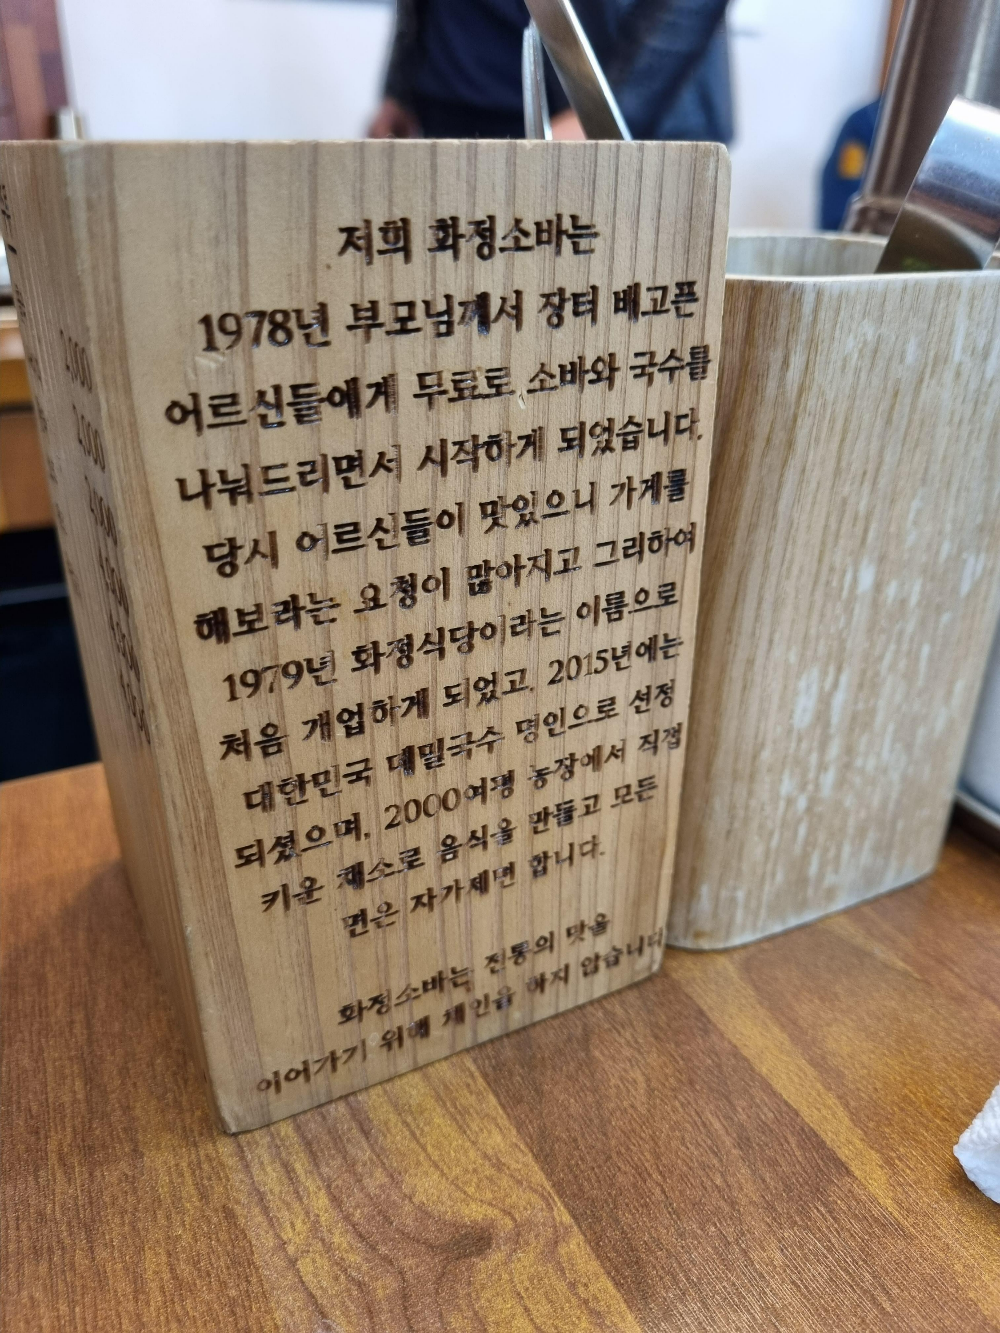 저희 화정소바는
1978년 부모님께서 장터 배고픈
어르신들에게 무료로 소바와 국수를
나눠드리면서 시작하게 되었습니다.
당시 어르신들이 맛있으니 가게를
해보라는 요청이 많아지고 그리하여
1979년 화정식당이라는 이름으로
처음 개업하게 되었고, 2015년에는
대한민국 메밀국수 명인으로 선정
되셨으며, 2000여평 농장에서 직접
키운 채소로 음식을 만들고 모든
면은 자가제면 합니다.
화정소바는 전통의 맛을
이어가기 위해 체인을 하지 않습니다